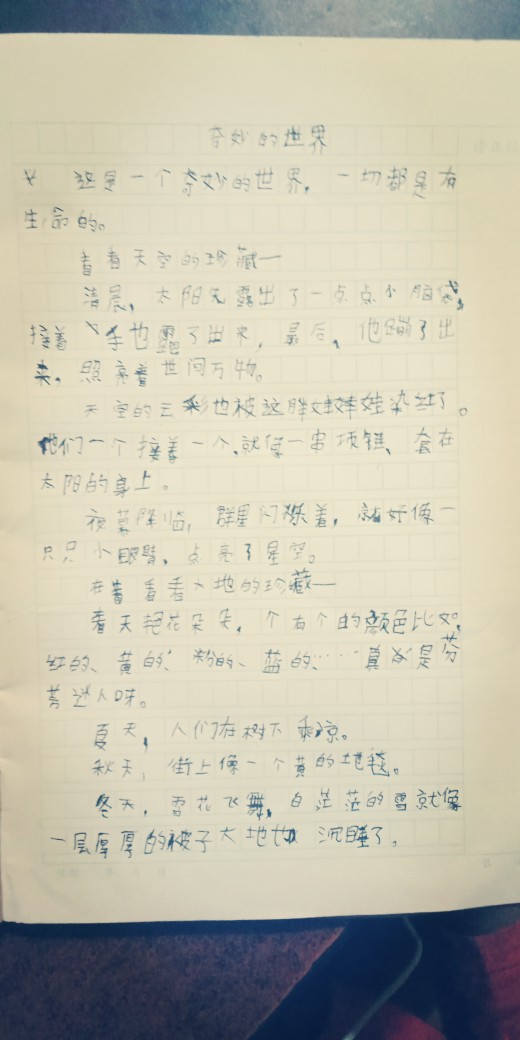 奇妙的世界
这是一个奇妙的世界，一切都是有
生命的。
看看天空的珍藏一
清晨，太阳先露出了一点点小脑袋，
接着 手也露了出来，最后，他蹦了出
来，照亮着世间万物。
天空的云彩也被这胖娃娃染红了。
他们一个接着一个，就像一串项链，套在
太阳的身上。
夜幕降临，群星闪烁着，就好像一
只只小眼睛，点亮了星空。
在看看大地的珍藏一
春天艳花朵朵，个有个的颜色比如，
红的、黄的、粉的、蓝的……真是芬
芳迷人呀。
夏天，人们在树下乘凉。
秋天，街上像一个黄的地毯。
冬天，雪花飞舞，白茫茫的雪就像
一层厚厚的被子大地也沉睡了。